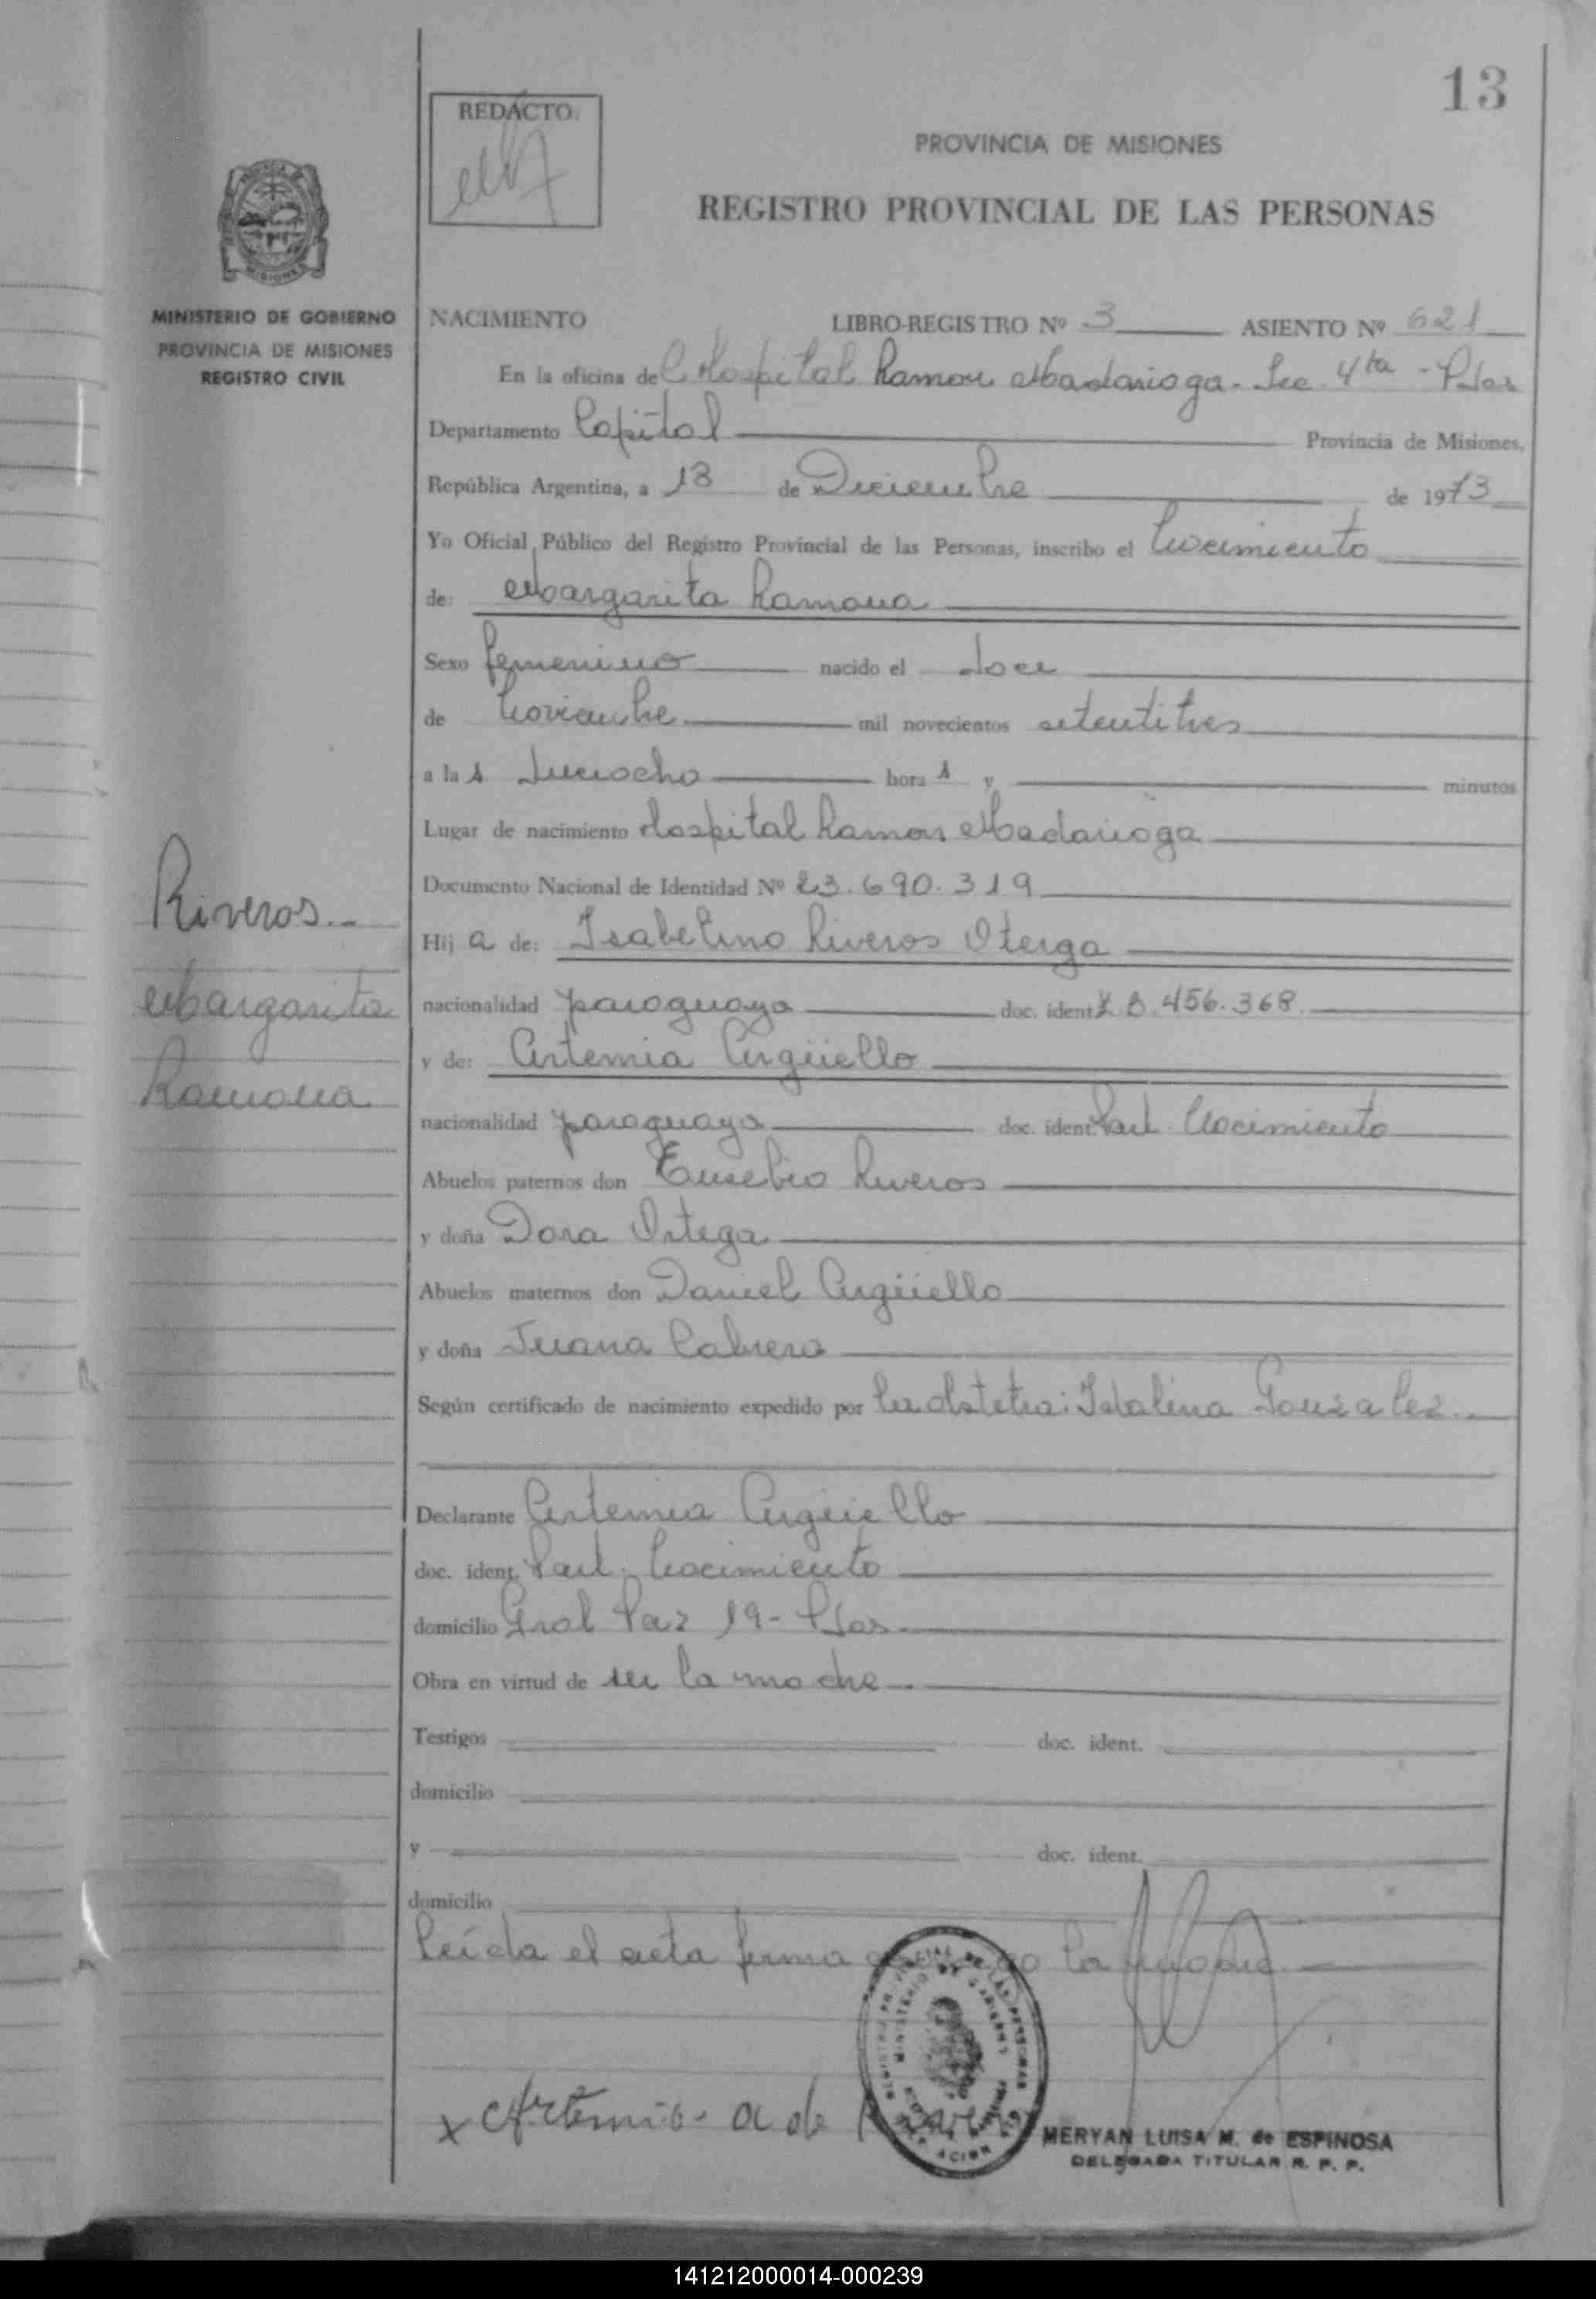 13
REDACTO:
PROVINCIA DE MISIONES
REGISTRO PROVINCIAL DE LAS PERSONAS
MINISTERIO DE GOBIERNO
PROVINCIA DE MISIONES
REGISTRO CIVIL
NACIMIENTO LIBRO-REGISTRO Nº 3 ASIENTO Nº 621
En la oficina del Hospital Ramon Madariaga - Sec. 4ta - Pdas
Departamento Capital Provincia de Misiones,
República Argentina, a 13 de Diciembre de 1973
Yo Oficial Público del Registro Provincial de las Personas, inscribo el Nacimiento
de: Margarita Ramona
Sexo femenino nacido el doce
de Noviembre mil novecientos setentitres
a las dieciocho horas y minutos
Lugar de nacimiento Hospital Ramon Madariaga
Documento Nacional de Identidad Nº 23.690.319
Riveros
Margarita
Ramona
Hija de: Isabelino Riveros Oterga
nacionalidad paraguaya doc. ident. 456.368
y de: Artemia Argüello
nacionalidad paraguaya doc. ident. Part. Nacimiento
Abuelos paternos don Eusebio Riveros
y doña Dora Ortega
Abuelos maternos don Daniel Argüello
y doña Juana Cabrera
Según certificado de nacimiento expedido por la obstetra: Idalina Gonzalez
Declarante Artemia Argüello
doc. ident. Part. Nacimiento
domicilio Gral Paz 19 - Pdas
Obra en virtud de ser la madre
Testigos doc. ident.
domicilio
y doc. ident.
domicilio
Leída el acta firma la madre
x Artemia A de
MERYAN LUISA M. de ESPINOSA
DELEGADA TITULAR R. P. P.
141212000014-000239